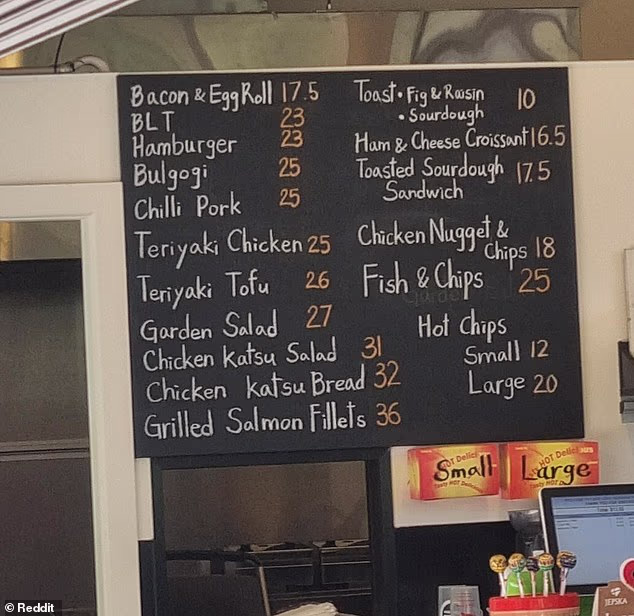 Bacon & Egg Roll 17.5
BLT 23
Hamburger 23
Bulgogi 25
Chilli Pork 25
Teriyaki Chicken 25
Teriyaki Tofu 26
Garden Salad 27
Chicken Katsu Salad 31
Chicken Katsu Bread 32
Grilled Salmon Fillets 36
Toast • Fig & Raisin 10
• Sourdough
Ham & Cheese Croissant 16.5
Toasted Sourdough 17.5
Sandwich
Chicken Nugget &
Chips 18
Fish & Chips 25
Hot Chips
Small 12
Large 20
Small
Large
JEPSKA
© Reddit